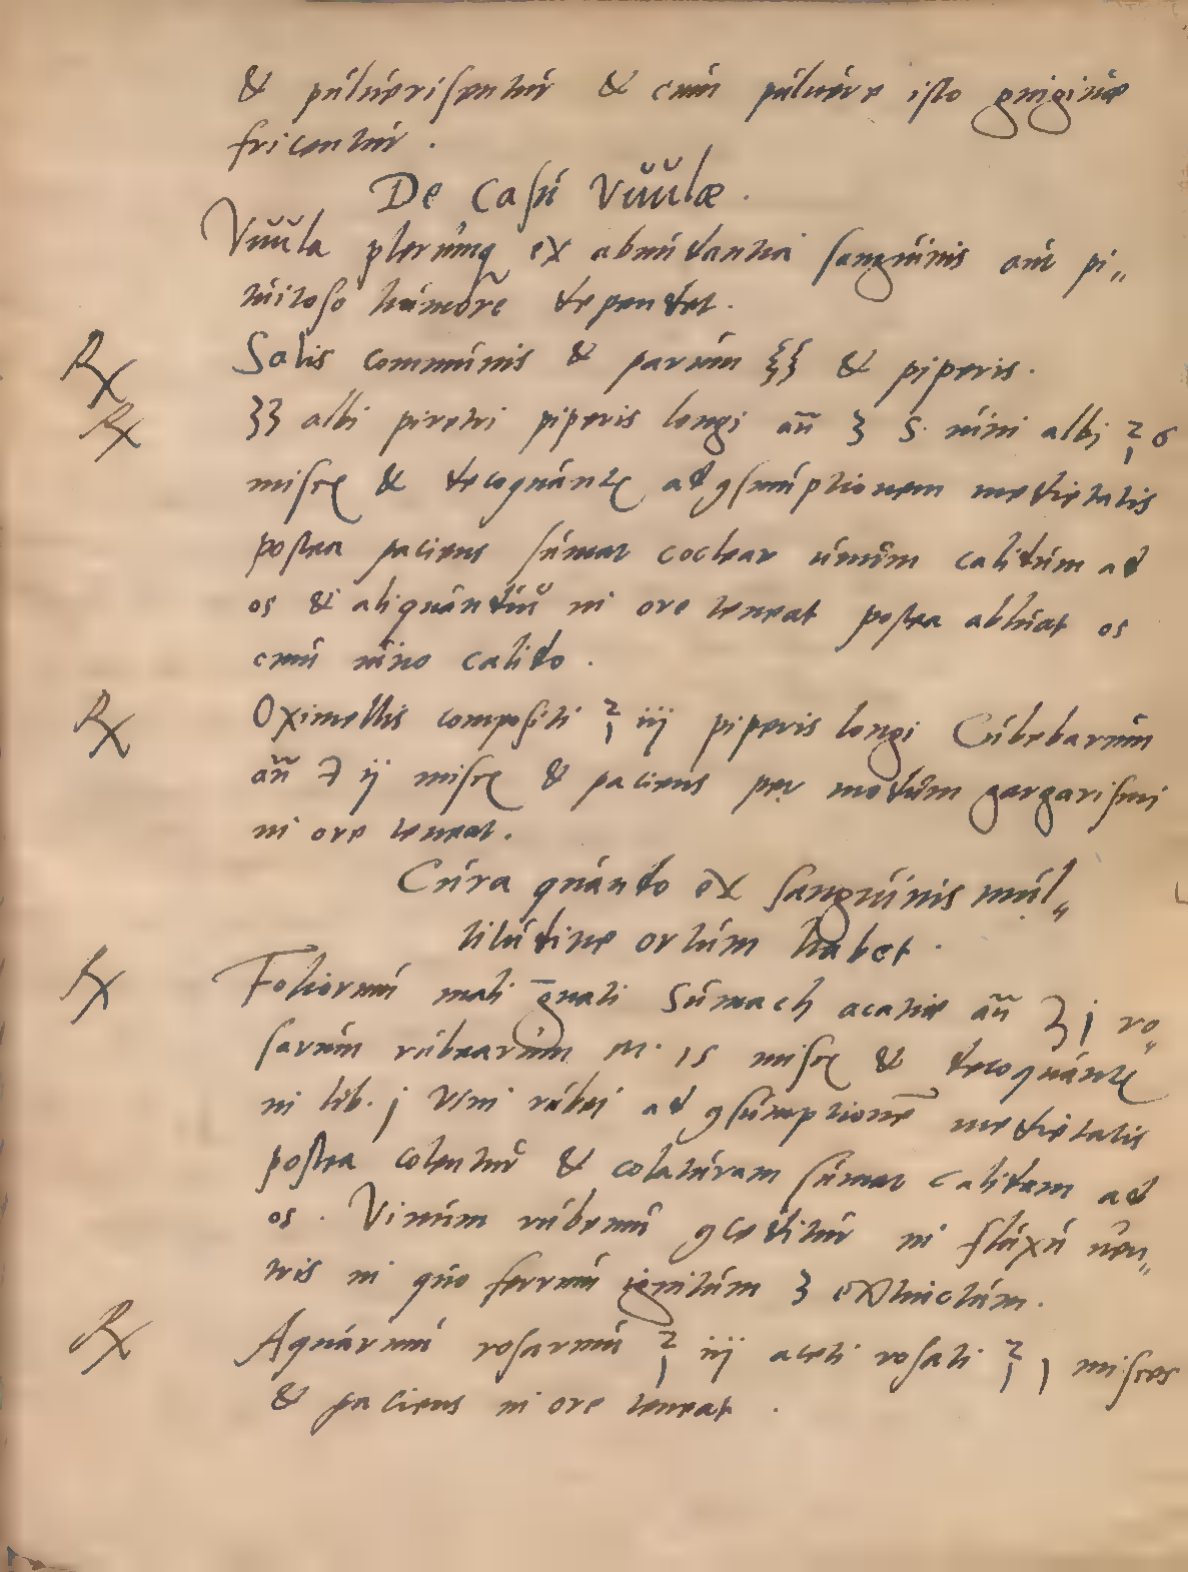 & puluerisentur & cum puluere isto gingiuæ
fricentur .
De Casu Vuulæ .
Vuula plerumq ex abundantia sanguinis aut pi„
tuitoso humore dependet .
℞ Salis communis & parum & piperis .
℞ albi piretri piperis longi añ ʒ S. uini albi ℥ 6
misce & decoquantr ad ꝯsumptionem medietatis
postea paciens sumat coclear unum calidum ad
os & aliquandiu in ore teneat postea abluat os
cum uino calido .
℞ Oximellis compositi ℥ iij piperis longi Cubebarum
añ ij misce & paciens per modum gargarismi
in ore teneat .
Cura quando ex sanguinis mul„
titudine ortum habet .
℞ Foliorum mali g̅nati Sumach acatiæ añ ʒ j ro„
sarum rubearum m. 1 S misce & decoquantr
in lib. j Vini rubei ad ꝯsumptionē medietatis
postea colentur & colaturam sumat calidam ad
os . Vinum rubeum ꝯceditur in fluxu uen„
tris in quo ferrum ignitum ʒ extinctum .
℞ Aquarum rosarum ℥ iij aceti rosati ℥ j misces
& paciens in ore teneat .